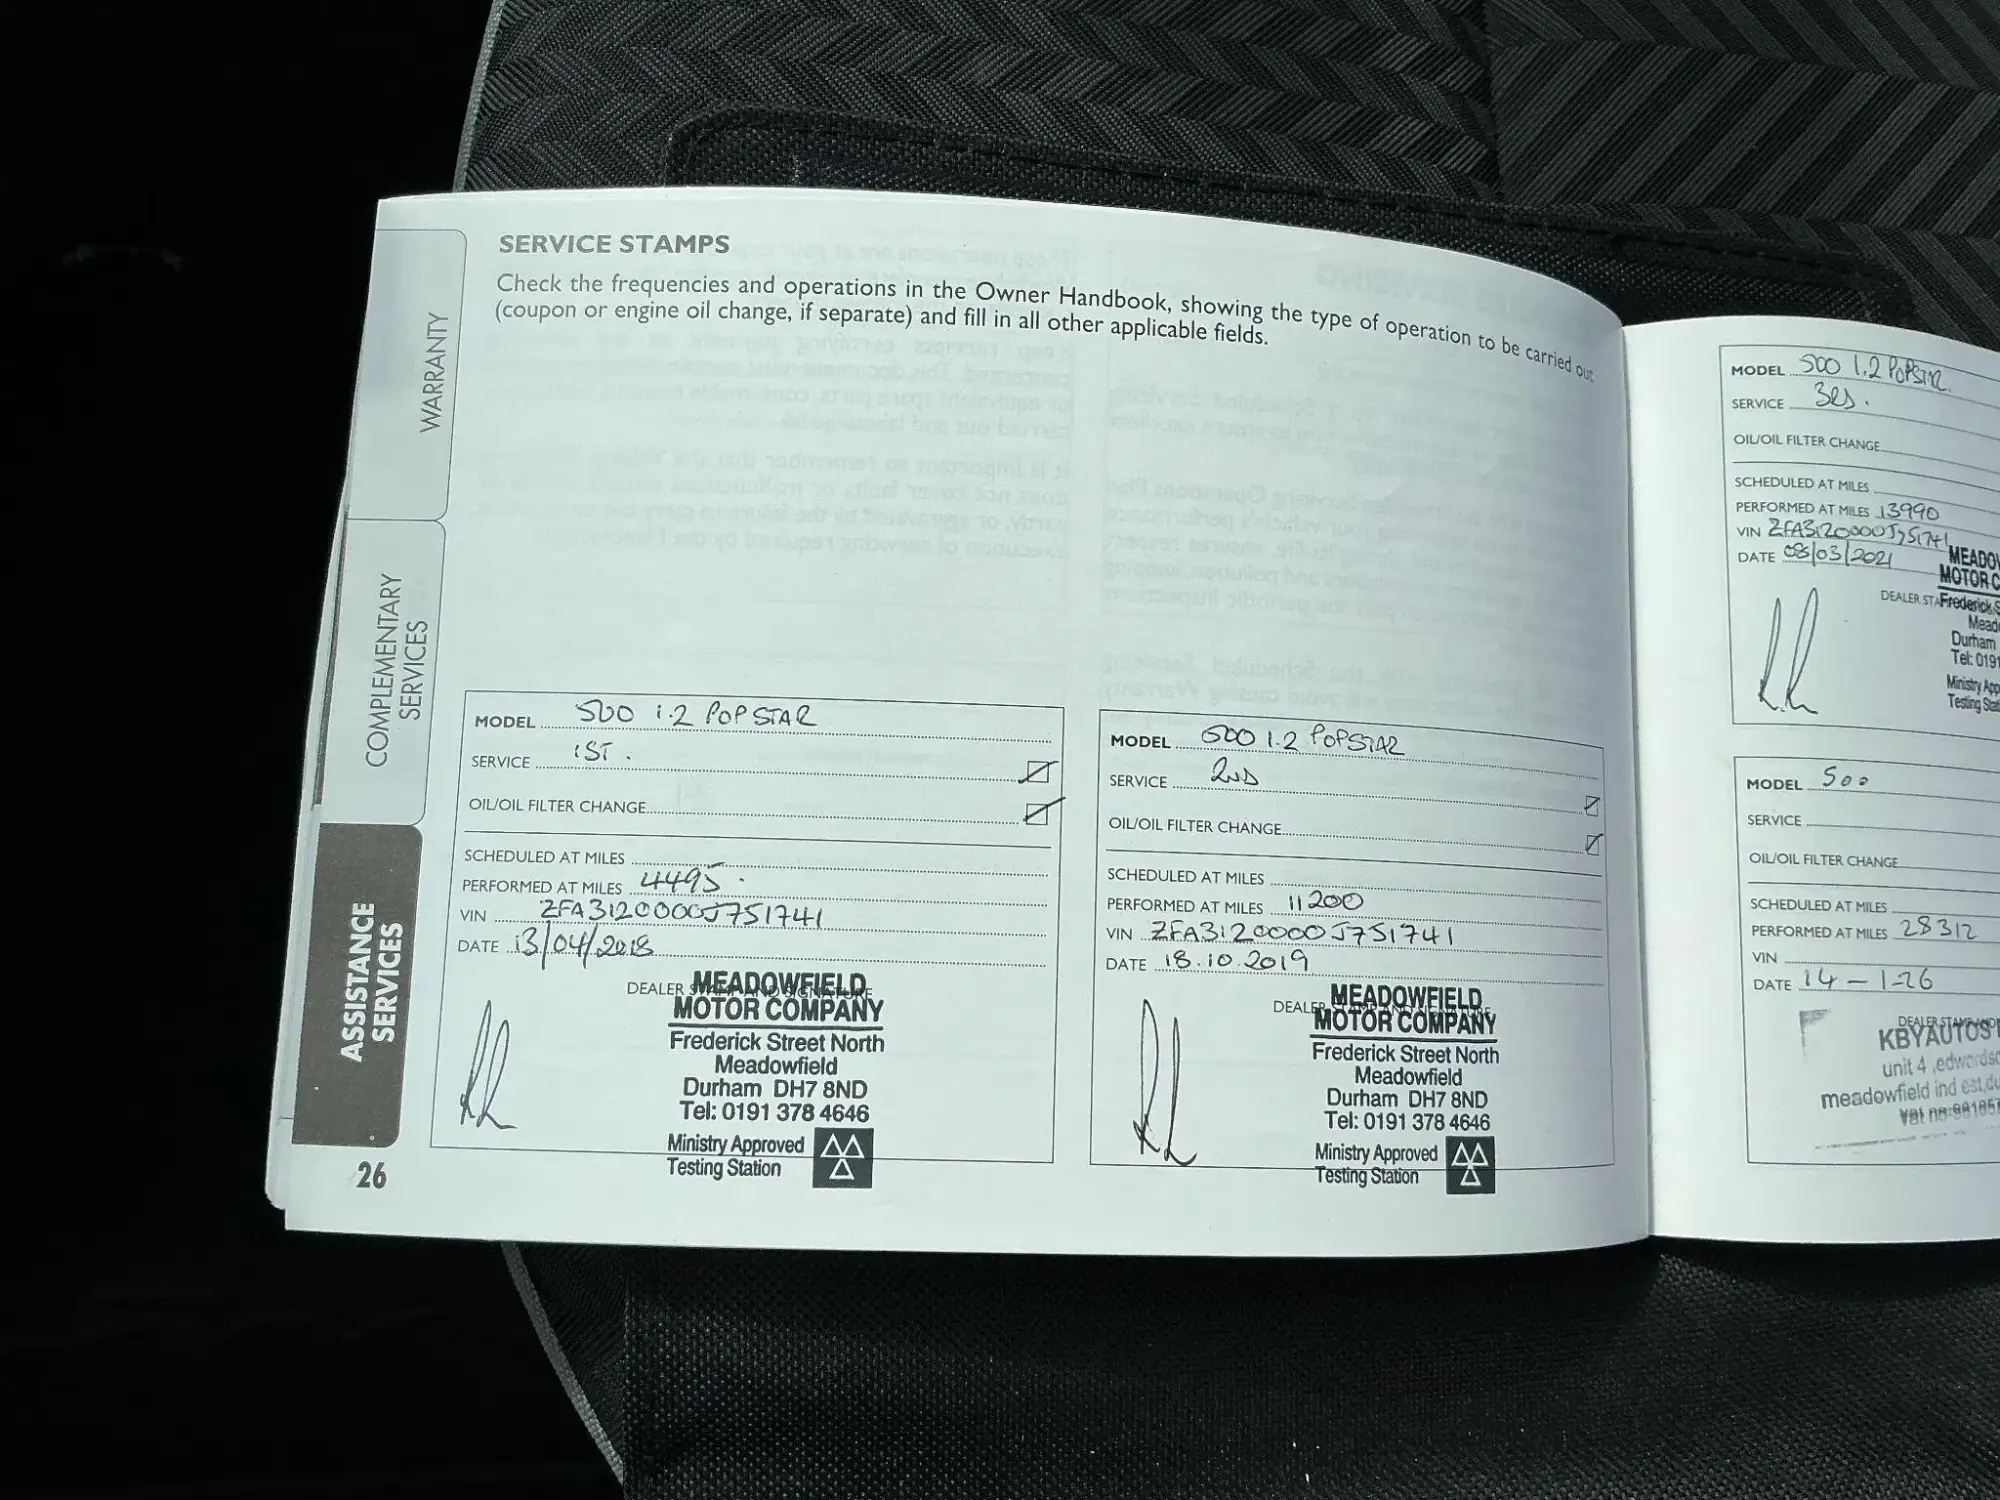 SERVICE STAMPS
Check the frequencies and operations in the Owner Handbook, showing the type of operation to be carried out
(coupon or engine oil change, if separate) and fill in all other applicable fields.
WARRANTY
COMPLEMENTARY
SERVICES
ASSISTANCE
SERVICES
26
MODEL 500 1.2 POPSTAR
SERVICE 1ST.
OIL/OIL FILTER CHANGE
SCHEDULED AT MILES
PERFORMED AT MILES 4495
VIN ZFA3120000J751741
DATE 13/04/2018
DEALER STAMP AND SIGNATURE
MEADOWFIELD
MOTOR COMPANY
Frederick Street North
Meadowfield
Durham DH7 8ND
Tel: 0191 378 4646
Ministry Approved
Testing Station
MODEL 500 1.2 POPSTAR
SERVICE 2ND
OIL/OIL FILTER CHANGE
SCHEDULED AT MILES
PERFORMED AT MILES 11200
VIN ZFA3120000J751741
DATE 18.10.2019
DEALER STAMP AND SIGNATURE
MEADOWFIELD
MOTOR COMPANY
Frederick Street North
Meadowfield
Durham DH7 8ND
Tel: 0191 378 4646
Ministry Approved
Testing Station
MODEL 500 1.2 POPSTAR.
SERVICE 3RD.
OIL/OIL FILTER CHANGE
SCHEDULED AT MILES
PERFORMED AT MILES 13990
VIN ZFA3120000J751741
DATE 08/03/2021
MEADOW
MOTOR C
DEALER STA
Frederick S
Mead
Durham
Tel: 019
Ministry App
Testing Stat
MODEL 500
SERVICE
OIL/OIL FILTER CHANGE
SCHEDULED AT MILES
PERFORMED AT MILES 28312
VIN
DATE 14-1-26
DEALER STAMP AND
KBYAUTOS
unit 4, edwardso
meadowfield ind est.du